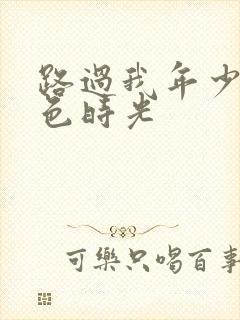 路過我年少
色時光
可樂只喝百事